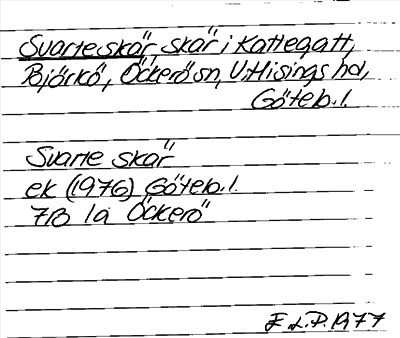 Svarteskär, skär i Kattegatt,
Björkö, Öckerö sn, V. Hisings hd,
Göteb. l.
Svarte skär
ek (1976) Göteb. l.
7B 1a Öckerö
F L.P. 1977